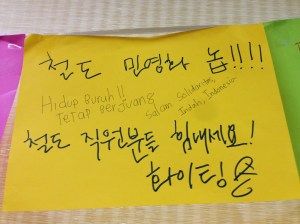 철도 민영화 놉!!!!
Hidup Buruh!!
Tetap Berjuang
Salam Solidaritas,
Indah, Indonesia
철도 직원분들 힘내세요!
화이팅